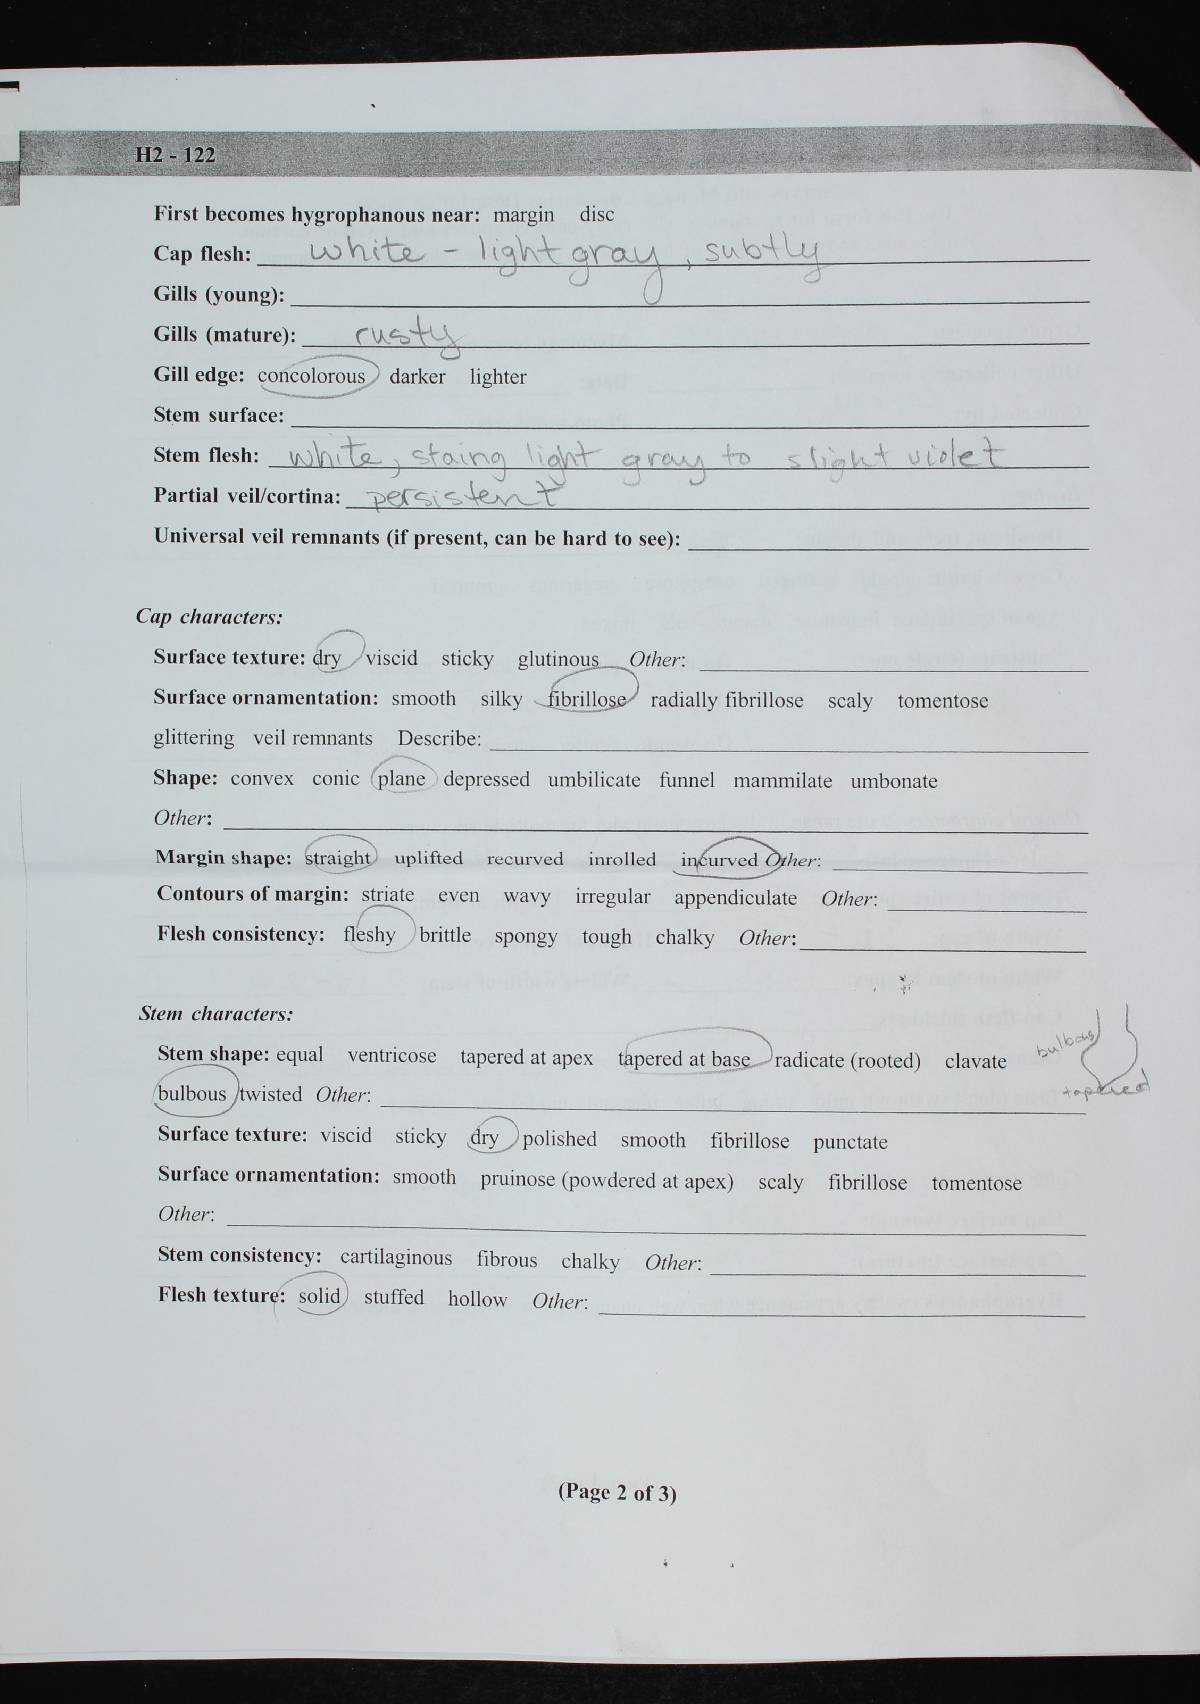 H2 - 122
First becomes hygrophanous near: margin disc
Cap flesh: white - light gray, subtly
Gills (young):
Gills (mature): rusty
Gill edge: concolorous darker lighter
Stem surface:
Stem flesh: white, staing light gray to slight violet
Partial veil/cortina: persistent
Universal veil remnants (if present, can be hard to see):
Cap characters:
Surface texture: dry viscid sticky glutinous Other:
Surface ornamentation: smooth silky fibrillose radially fibrillose scaly tomentose
glittering veil remnants Describe:
Shape: convex conic plane depressed umbilicate funnel mammilate umbonate
Other:
Margin shape: straight uplifted recurved inrolled incurved Other:
Contours of margin: striate even wavy irregular appendiculate Other:
Flesh consistency: fleshy brittle spongy tough chalky Other:
Stem characters:
Stem shape: equal ventricose tapered at apex tapered at base radicate (rooted) clavate bulbous
bulbous twisted Other: tapered
Surface texture: viscid sticky dry polished smooth fibrillose punctate
Surface ornamentation: smooth pruinose (powdered at apex) scaly fibrillose tomentose
Other:
Stem consistency: cartilaginous fibrous chalky Other:
Flesh texture: solid stuffed hollow Other:
(Page 2 of 3)